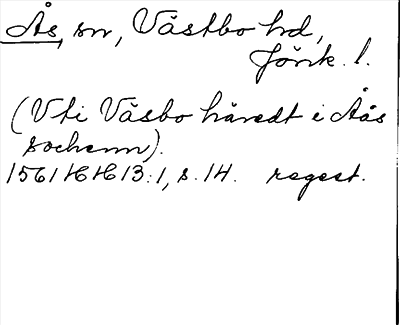 Ås, sn, Västbo hd,
Jönk. l.
(Vti Väsbo häredt i Åås
sochenn).
1561 HH 13:1, s. 14. regest.